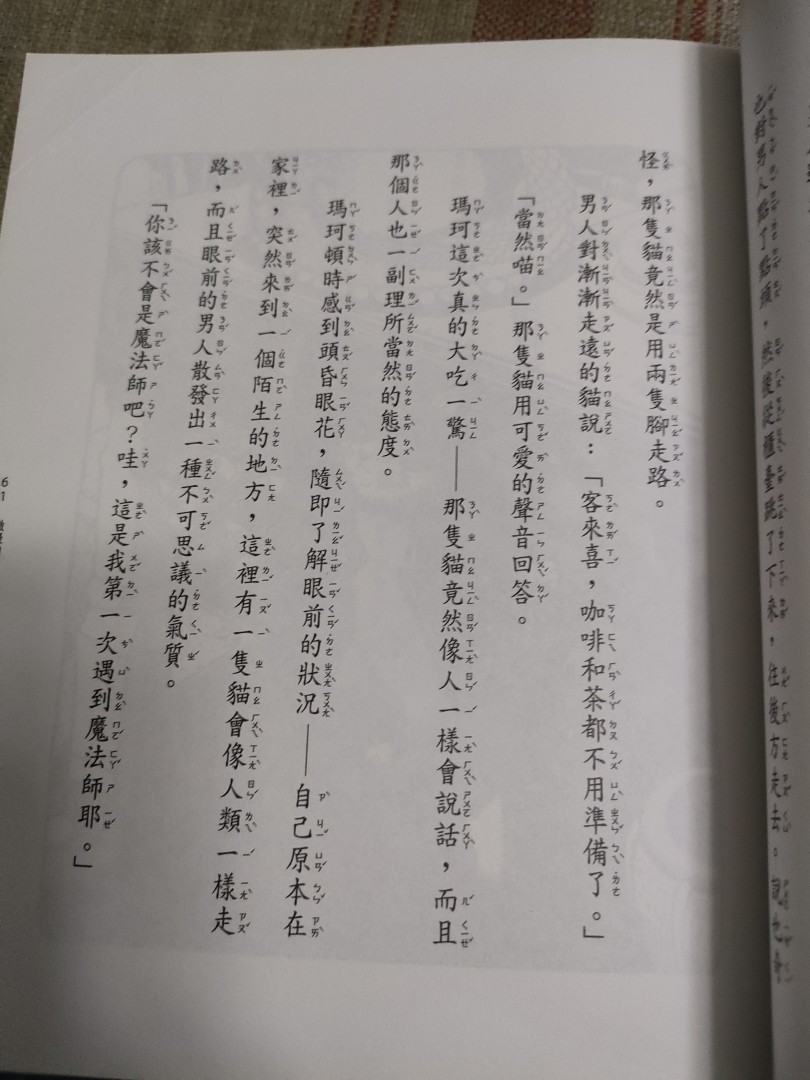 也對男人點了點頭，然後從櫃臺跳了下來，往後方走去。說也奇
怪，那隻貓竟然是用兩隻腳走路。
男人對漸漸走遠的貓說：「客來喜，咖啡和茶都不用準備了。」
「當然喵。」那隻貓用可愛的聲音回答。
瑪珂這次真的大吃一驚——那隻貓竟然像人一樣會說話，而且
那個人也一副理所當然的態度。
瑪珂頓時感到頭昏眼花，隨即了解眼前的狀況——自己原本在
家裡，突然來到一個陌生的地方，這裡有一隻貓會像人類一樣走
路，而且眼前的男人散發出一種不可思議的氣質。
「你該不會是魔法師吧？哇，這是我第一次遇到魔法師耶。」
61